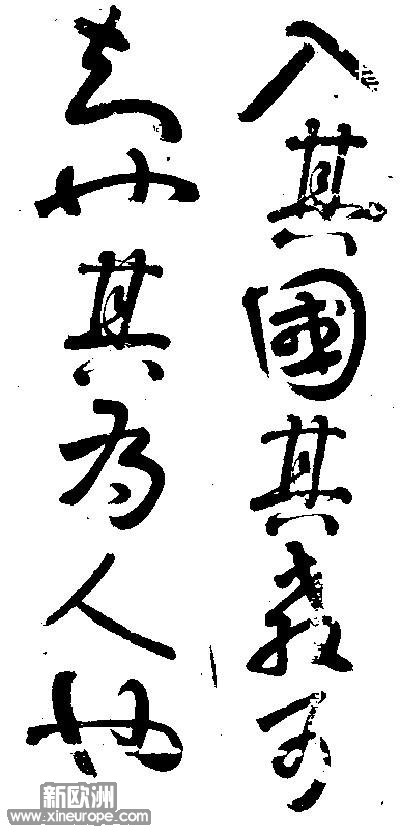 入其國其教可
知也其為人也
新欧洲
www.xineurope.com